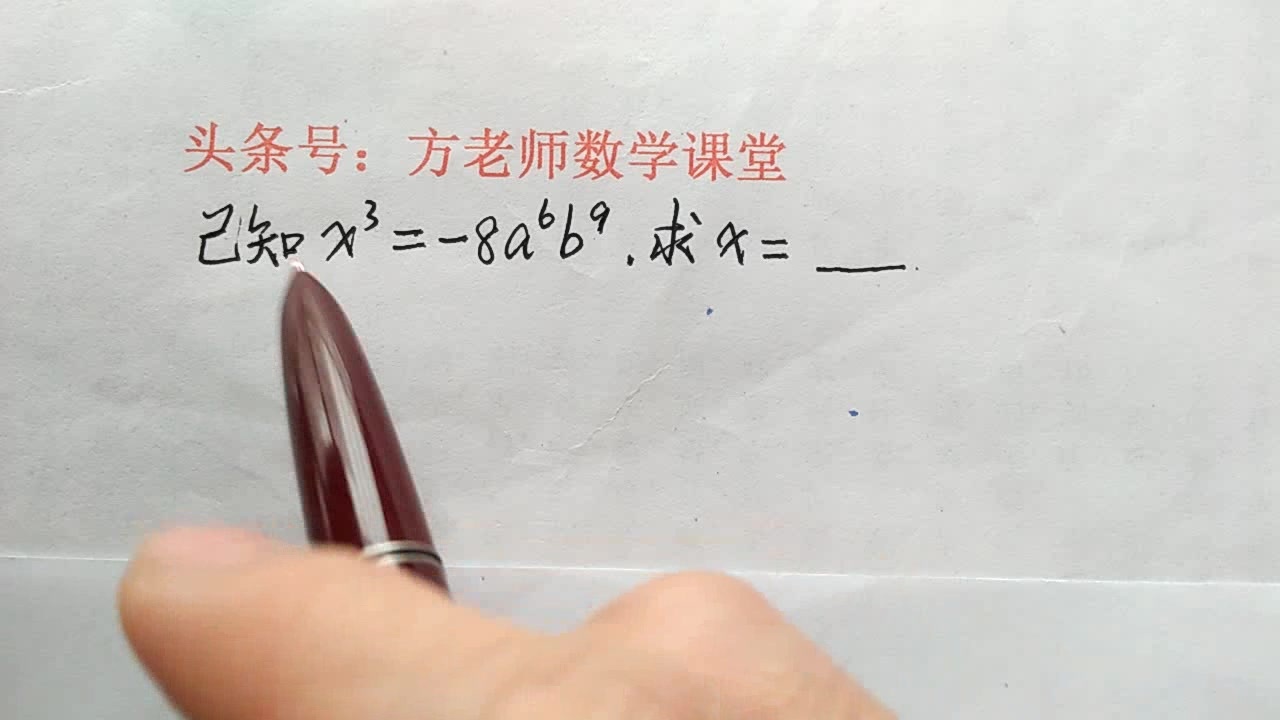 头条号：方老师数学课堂
已知 x³=-8a⁶b⁹.求x=___.